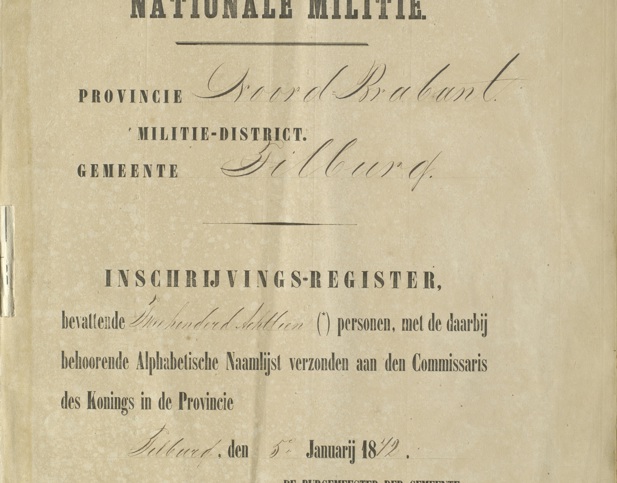 NATIONALE MILITIE.
PROVINCIE Noord Brabant.
MILITIE-DISTRICT.
GEMEENTE Tilburg.
INSCHRIJVINGS-REGISTER,
bevattende Tweehonderd Achttien (*) personen, met de daarbij
behoorende Alphabetische Naamlijst verzonden aan den Commissaris
des Konings in de Provincie
Tilburg, den 5n Januarij 1872.
DE BURGEMEESTER DER GEMEENTE